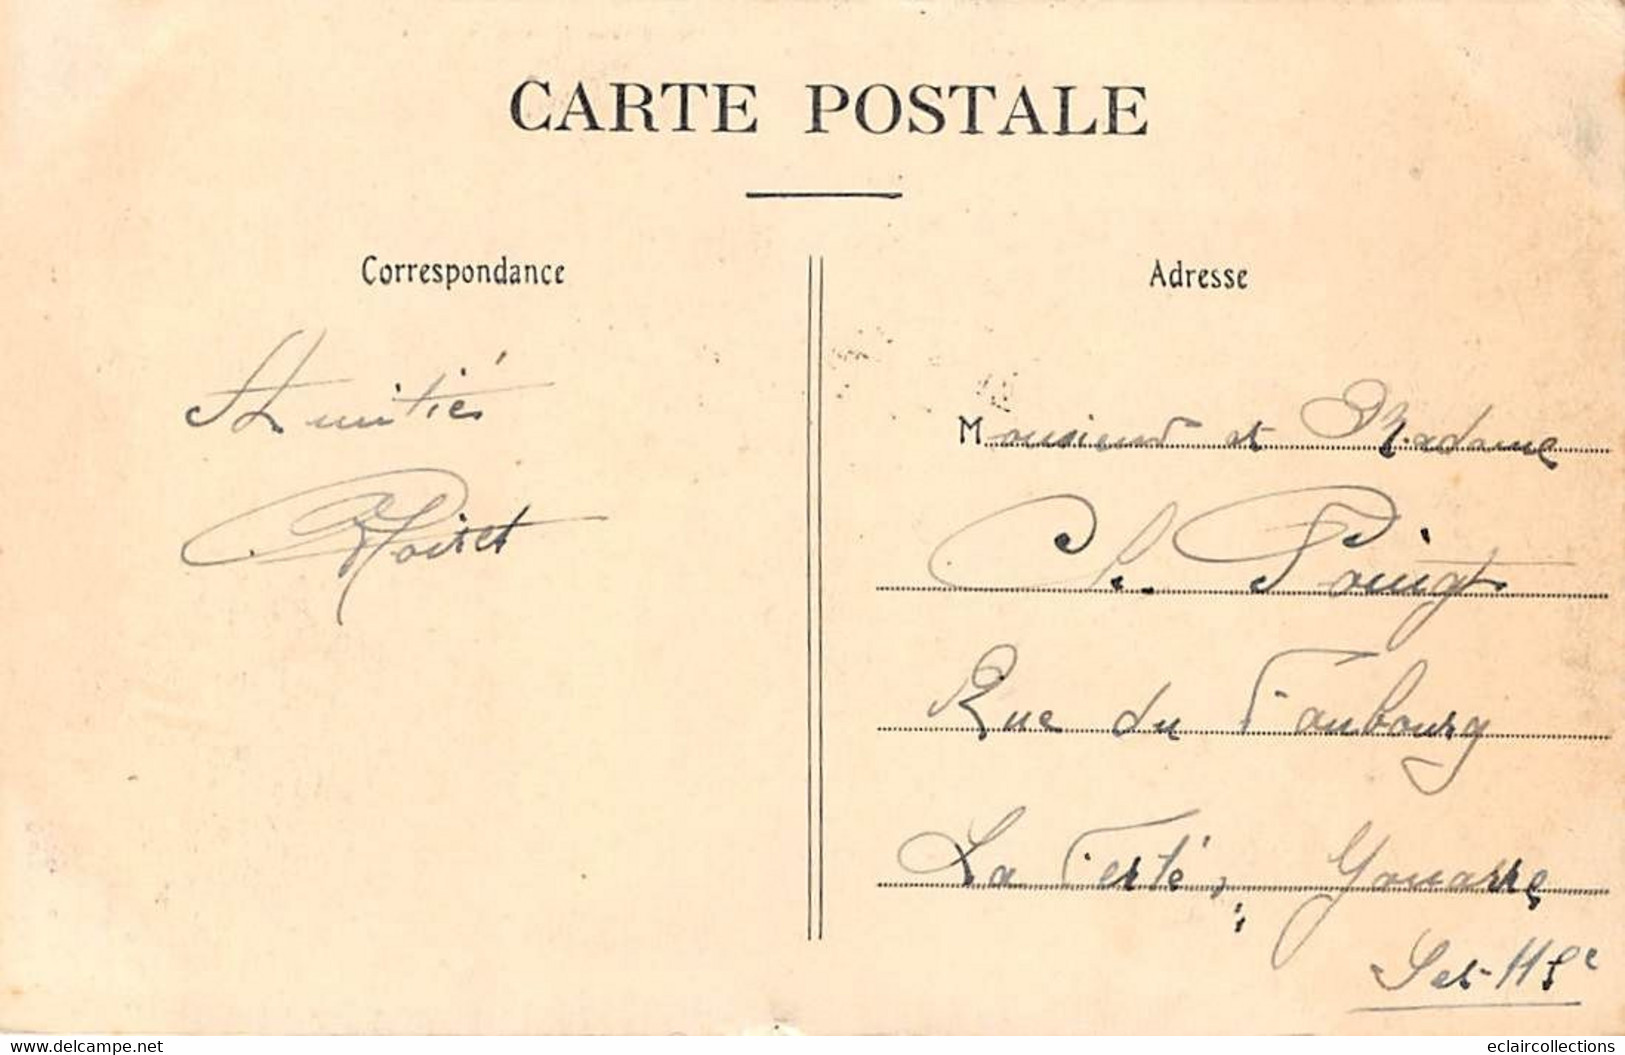 CARTE POSTALE
Correspondance
Amitiés
Adresse
Monsieur et Madame
Ch. Pouigt
Rue du Faubourg
La Ferté, Jouarre
Set-Me
Delcampe.net
eclaircollections